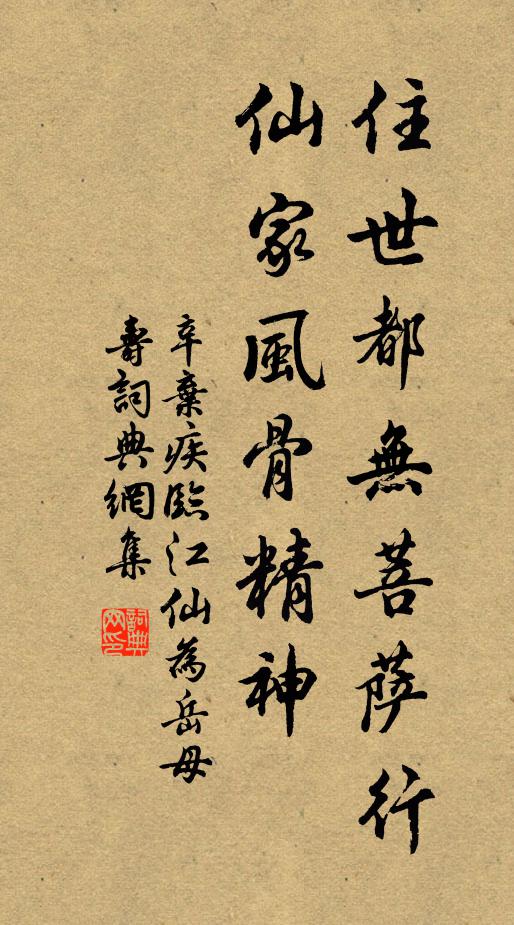 住世都無菩薩行
仙家風骨精神
辛棄疾臨江仙為岳母
壽詞典網集
詞典网印